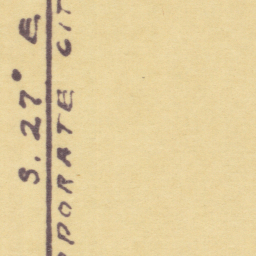 S. 27° E
PORATE CIT